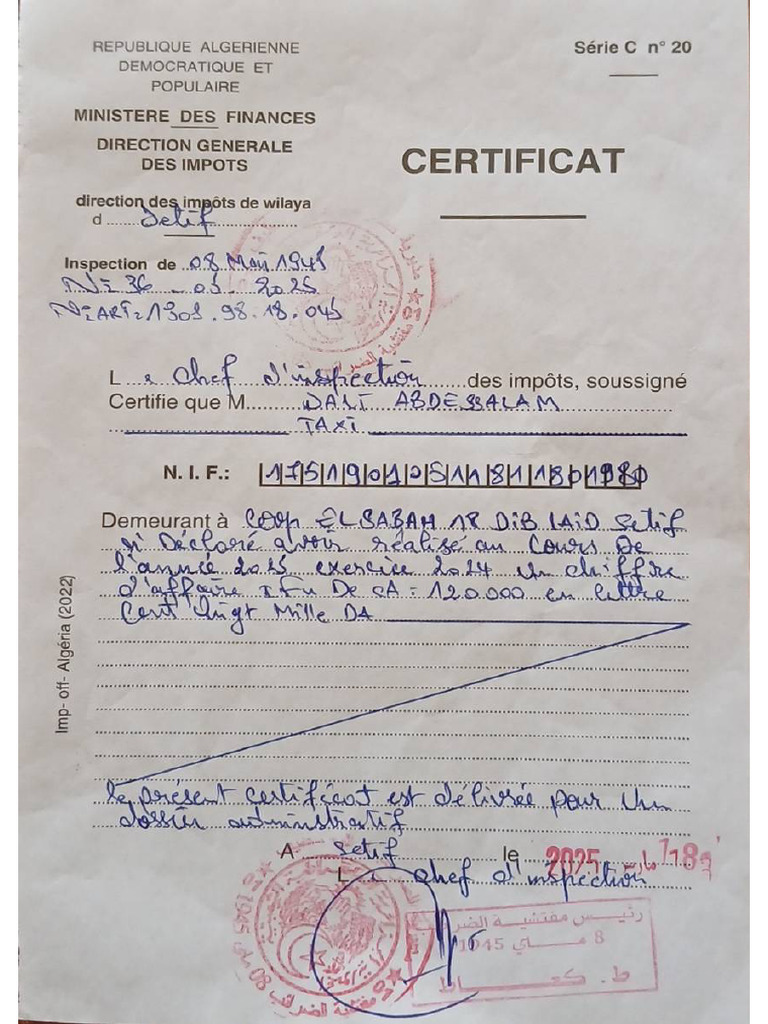 REPUBLIQUE ALGERIENNE
DEMOCRATIQUE ET
POPULAIRE
MINISTERE DES FINANCES
DIRECTION GENERALE
DES IMPOTS
direction des impôts de wilaya
d Setif
Inspection de 08 Mai 1945
N= 36 - 03 - 2025
N=ART=1901.98.18.045
Série C n° 20
CERTIFICAT
L e Chef d'inspection des impôts, soussigné
Certifie que M. DALI ABDESSALAM
TAXI
N. I. F.:
Demeurant à COOP ELSABAH 18 DIB LAID Setif
Déclaré avoir réalisé au Cours De
l'année 2025 exercice 2024 un chiffre
d'affaire De CA = 120.000 en lettre
Cent Vingt Mille DA
Imp- off- Algéria (2022)
le présent certificat est délivrée pour Un
dossier administratif
A Setif le 2025 مارس 18
L e chef d'inspection
رئيس مفتشية الضرائب
8 مــاي 1945